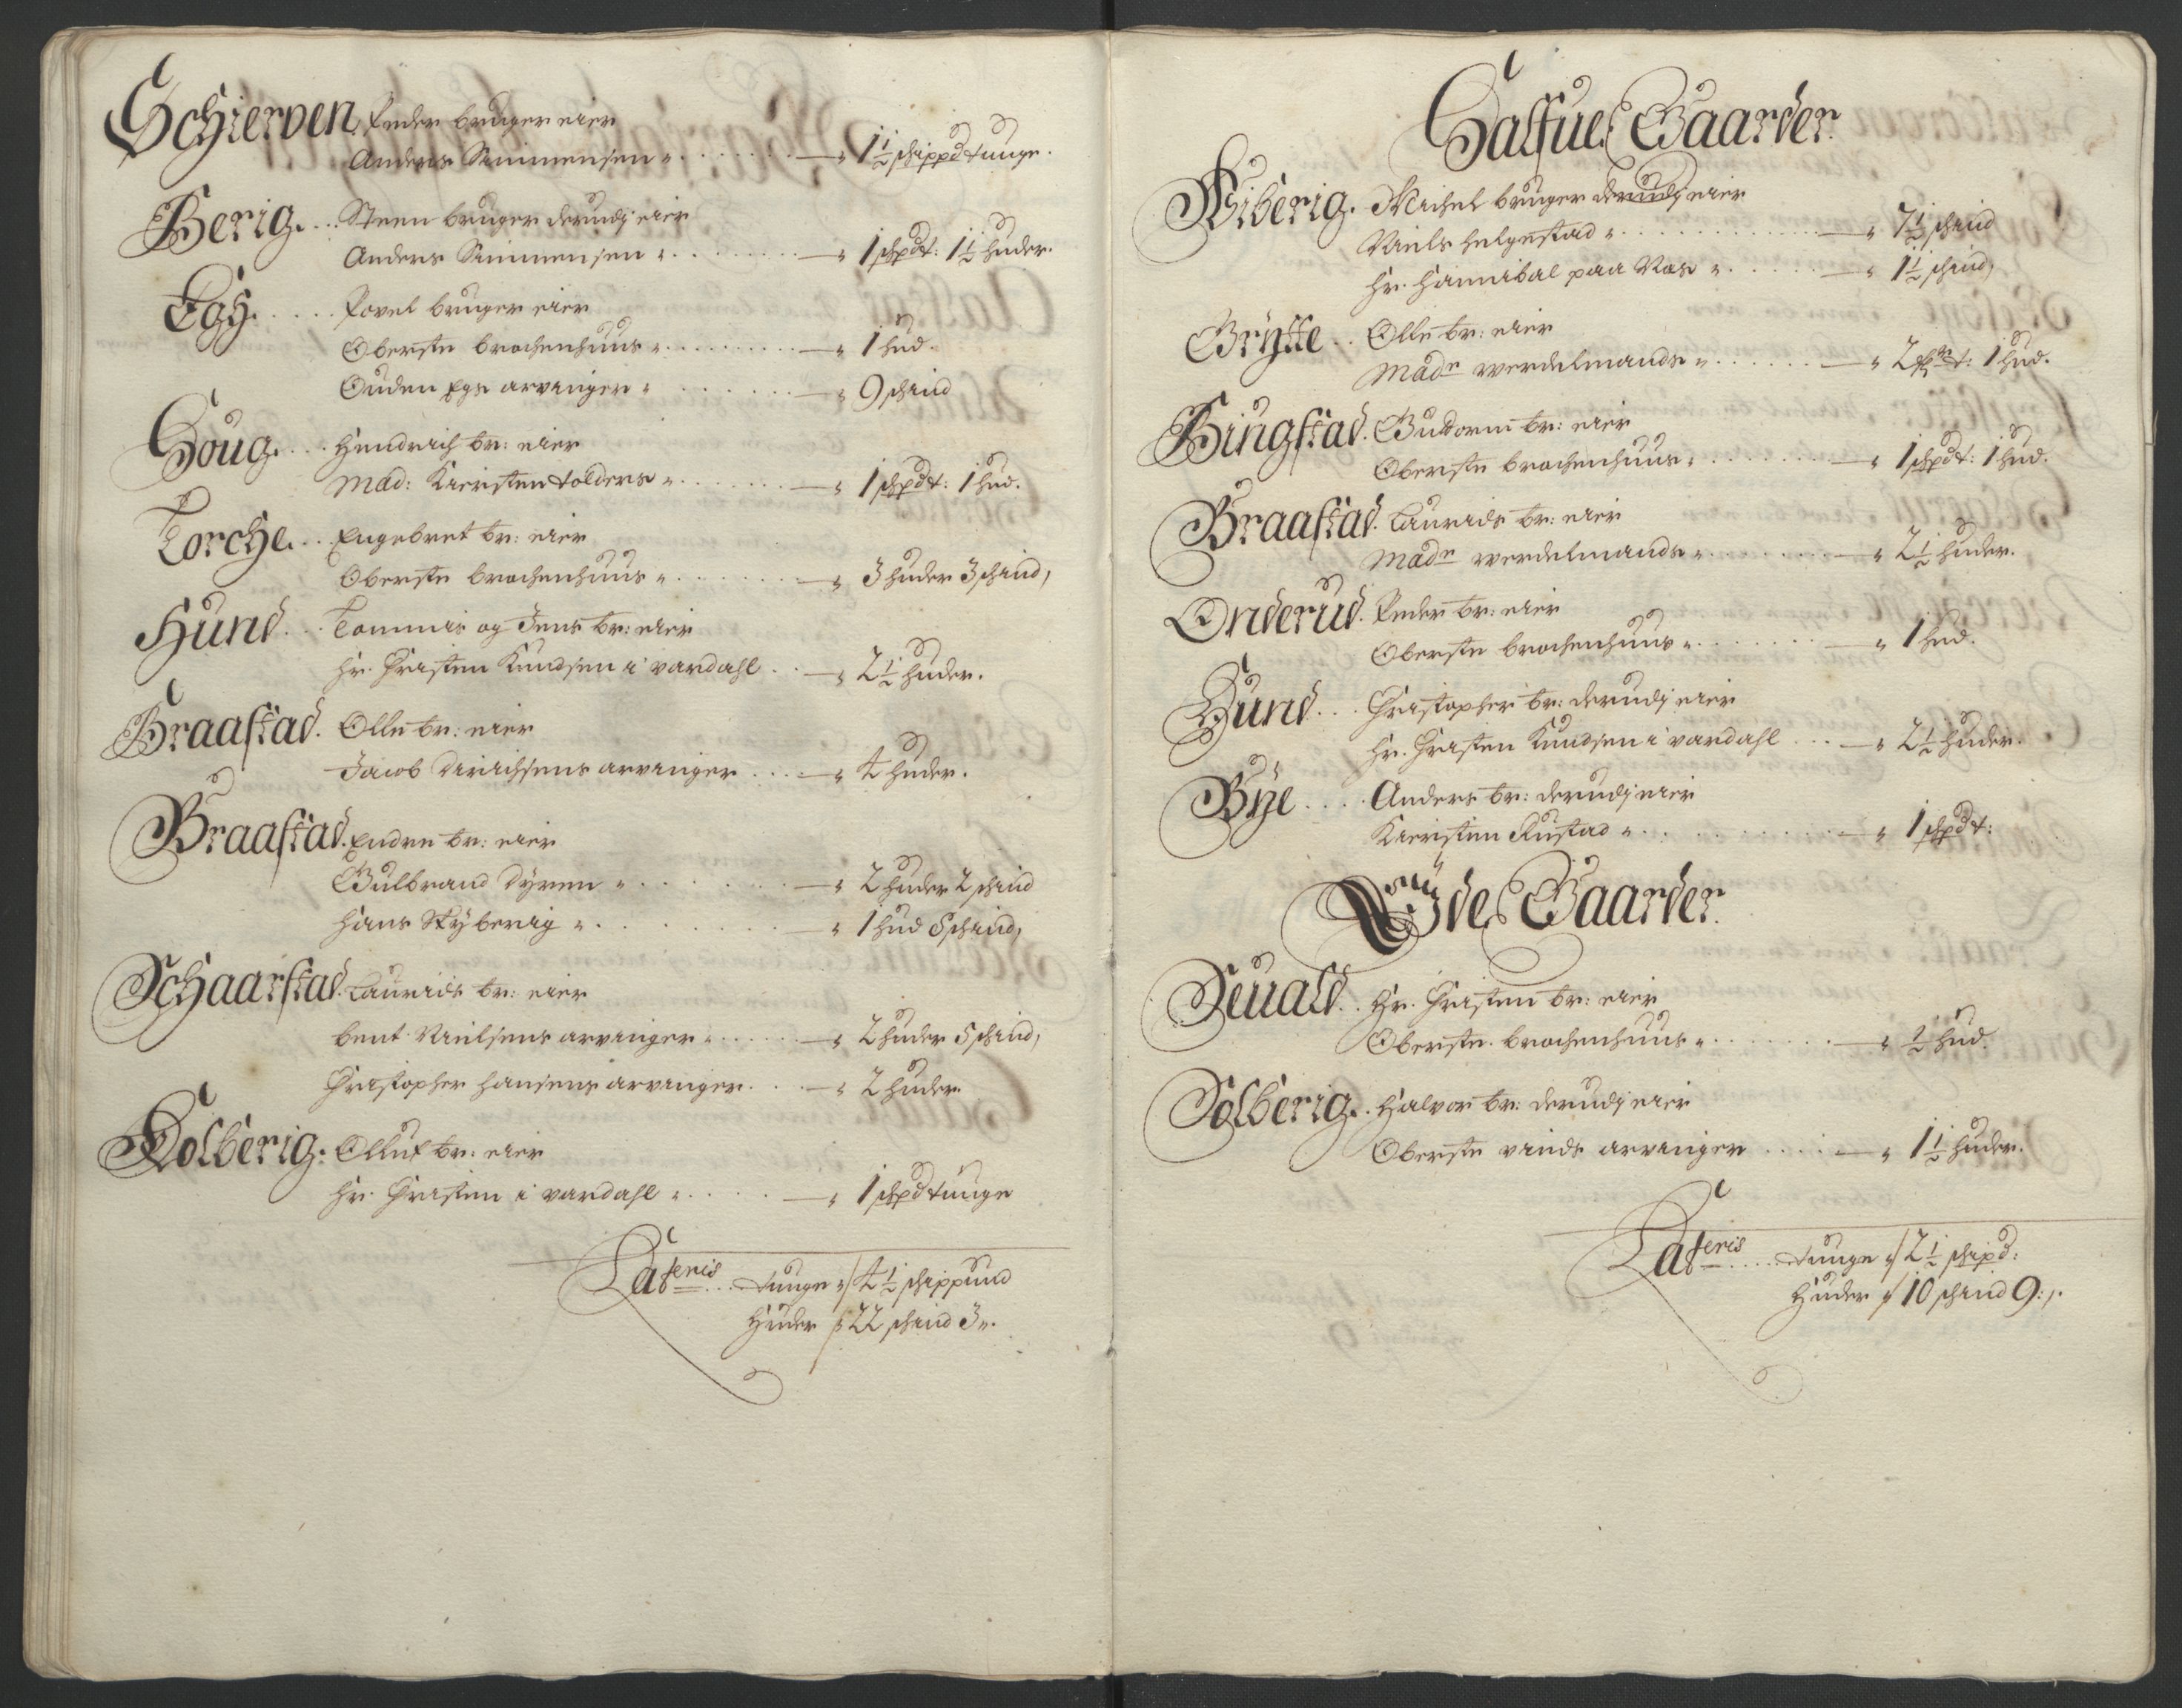 Schierven, Peder bruger eier
Anders Simmensen „ . . . . . . „ 1½ schippd tunge.
Berig. . . Steen bruger derudj eier
Anders Simmensen „ . . . . . . „ 1 schpdt: 1½ huder.
Egh. . . . . Povel bruger eier
Oberste brochenhuus „ . . . . . . „ 1 hud.
Ouden Egs arvinger „ . . . . . „ 9 schind
Houg. . . Hendrich br: eier
Mad: Kiersten tolders „ . . . . . „ 1 schpdt: 1 hud.
Torche. . . Engebret br: eier
Oberste brochenhuus „ . . . . . „ 3 huder 3 schind,
Hund. . . Tommis og Jens br: eier
Hr. Christen Knudsen i vardahl . . „ 2½ huder.
Braastad. Olle br: eier
Jacob Dirichsens arvinger . . . „ 4 huder.
Braastad. Endre br: eier
Gulbrand dyren „ . . . . . . „ 2 huder 2 schind
Hans Skyberig „ . . . . . . „ 1 hud 5 schind,
Schaarstad. Laurids br: eier
bent Nielsens arvinger „ . . . . . „ 2 huder 5 schind,
Christopher hansens arvinger . . . „ 2 huder.
Kolberig. Olluf br: eier
Hr. Christen i vardahl „ . . . . „ 1 schpd tunge
Lateris . . . tunge „/ 4½ schippund
Huder / 22 schind 3„.
Halfue Gaarder.
Wiberig. Michel bruger derudj eier
Niels helgestad „ . . . . . . . „ 7½ schind
Hr. Hannibal paa Næs „ . . . . . „ 1½ schind,
Brysche . . Olle br: eier
Madn werdelmands „ . . . . . . „ 2 1 hud.
Ringstad. Guttorm br: eier
Oberste brochenhuus „ . . . . . „ 1 schpdt: 1 hud.
Braastad. Laurids br: eier
Madn werdelmands „ . . . . . . „ 2½ huder.
Onderud. Peder br: eier
Oberste brochenhuus „ . . . . . „ 1 hud.
Hund. . . Christopher br: derudj eier
Hr. Christen Knudsen i vardahl . . . „ 2½ huder.
Bye . . . . Anders br: derudj eier
Kiersten Rustad „ . . . . . . . „ 1 schpdt:
Øde Gaarder.
Seuald. . Hr. Christen br: eier
Oberste brochenhuus „ . . . . . . „ ½ hud.
Solberig. . Halvor br: derudj eier
Oberste vinds arvinger . . . . „ 1½ huder.
Lateris . . . . tunge „/ 2½ schipd:
Huder / 10 schind 9:,.